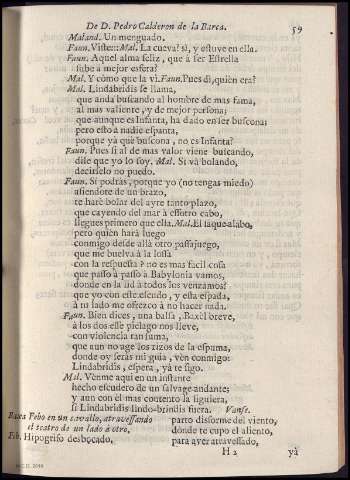 De D. Pedro Calderon de la Barca. 59
Maland. Un menguado.
Faun. Viste::: Mal. La cueva? sì, y estuve en ella.
Faun. Aquel alma feliz, que à ser Estrella
sube à mejor esfera?
Mal. Y còmo que la vì. Faun. Pues dì, quièn era?
Mal. Lindabridis se llama,
que anda buscando al hombre de mas fama,
al mas valiente, y de mejor persona;
que aunque es Infanta, ha dado en ser buscona;
pero esto à nadie espanta,
porque yà què buscona, no es Infanta?
Faun. Pues si al de mas valor viene buscando,
dile que yo lo soy. Mal. Si và bolando,
decirselo no puedo.
Faun. Si podràs, porque yo (no tengas miedo)
asiendote de un brazo,
te harè bolar del ayre tanto plazo,
que cayendo del mar à essotro cabo,
llegues primero que ella. Mal. El taque alabo,
pero quièn harà luego
conmigo desde allà otro passajuego,
que me buelva à la losa
con la respuesta? no es mas facil cosa
que passo à passo à Babylonia vamos,
donde en la lid à todos los venzamos?
que yo con este escudo, y esta espada,
à tu lado me ofrezco à no hacer nada.
Faun. Bien dices, una balsa, Baxèl breve,
à los dos esse pielago nos lleve,
con violencia tan suma,
que aun no aje los rizos de la espuma,
donde oy seràs mi guia, vèn conmigo:
Lindabridis, espera, yà te sigo.
Mal. Venme aqui en un instante
hecho escudero de un salvage andante;
y aun con èl mas contento la siguiera,
si Lindabridis lindo-brindis fuera. Vanse.
Baxa Febo en un cavallo, atravessando
el teatro de un lado à otro.
Feb. Hipogrifo desbocado,
parto disforme del viento,
donde te cupo el aliento,
para aver atravessado,
H 2 yà